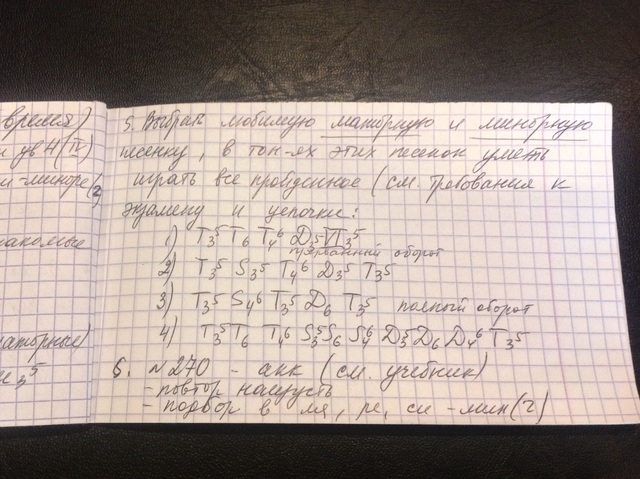 время)
ув 4 (IV)
и-миноре (2
накомые
аторные)
5. Выбрав любимую мажорную и минорную
песенку, в тон-ях этих песенок уметь
играть все пройденное (см. Требования к
экзамену и цепочки:
1) T₃⁵ T₆ T₄⁶ D₃⁵ VI₃⁵
прерванный оборот
2) T₃⁵ S₃⁵ T₄⁶ D₃⁵ T₃⁵
3) T₃⁵ S₄⁶ T₃⁵ D₆ T₃⁵ полный оборот
4) T₃⁵ T₆ T₄⁶ S₃⁵ S₆ S₄⁶ D₃⁵ D₆ D₄⁶ T₃⁵
6. №270 - акк (см. учебник)
- повтор наизусть
- подбор в ля, ре, си -мин (г)